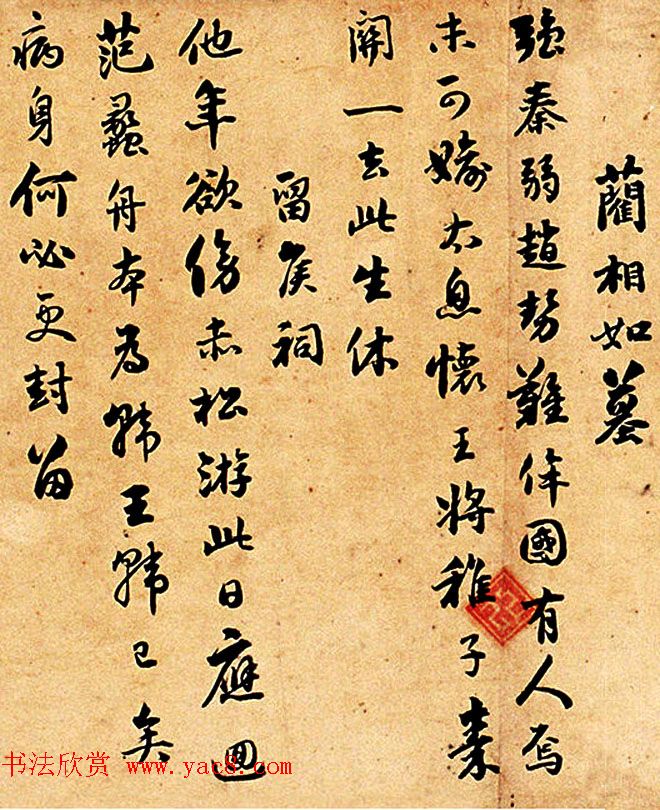 藺相如墓
强秦弱趙勢難侔國有人焉
未可媮太息懷王將稚子秦
關一去此生休
留矦祠
他年欲傍赤松游此日應囬
范蠡舟本為韓王韓已矣
病身何必更封留
书法欣赏 www.yac8.com